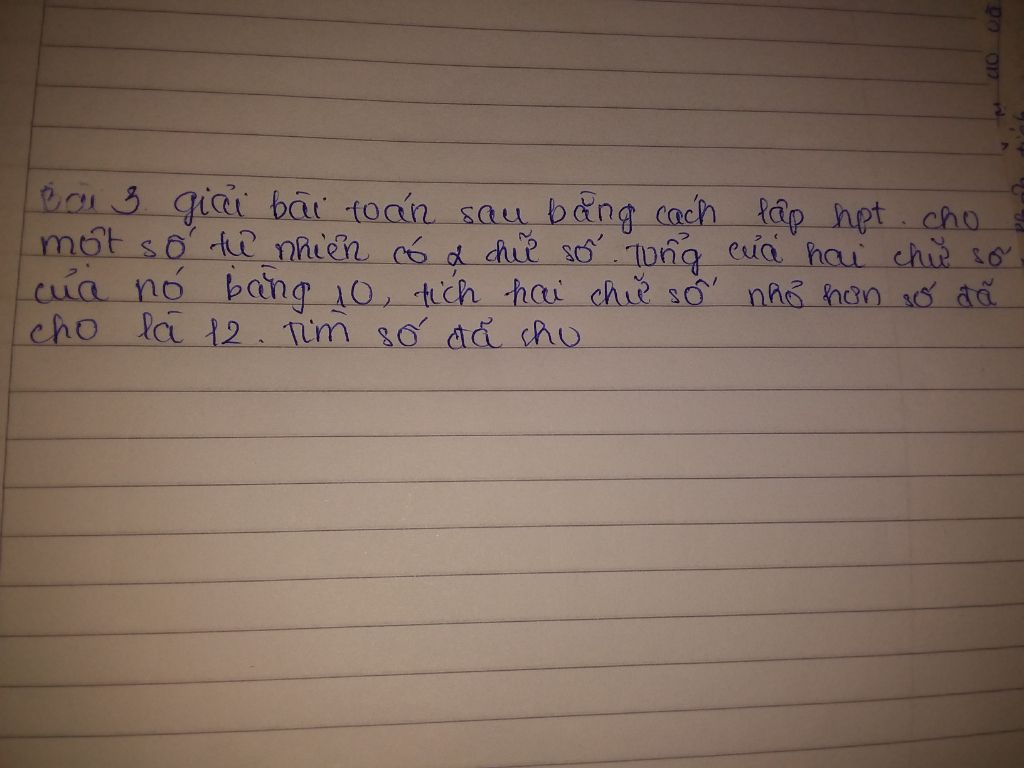 Bài 3 giải bài toán sau bằng cách lập hpt. cho
một số tự nhiên có 2 chữ số. Tổng của hai chữ số
của nó bằng 10, tích hai chữ số nhỏ hơn số đã
cho là 12. Tìm số đã cho